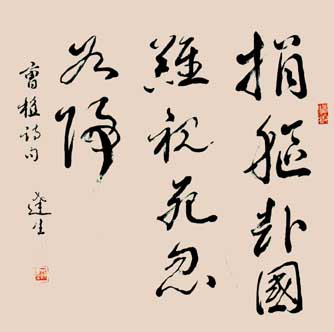 捐軀赴國
難視死忽
如歸
曹植诗句
達生